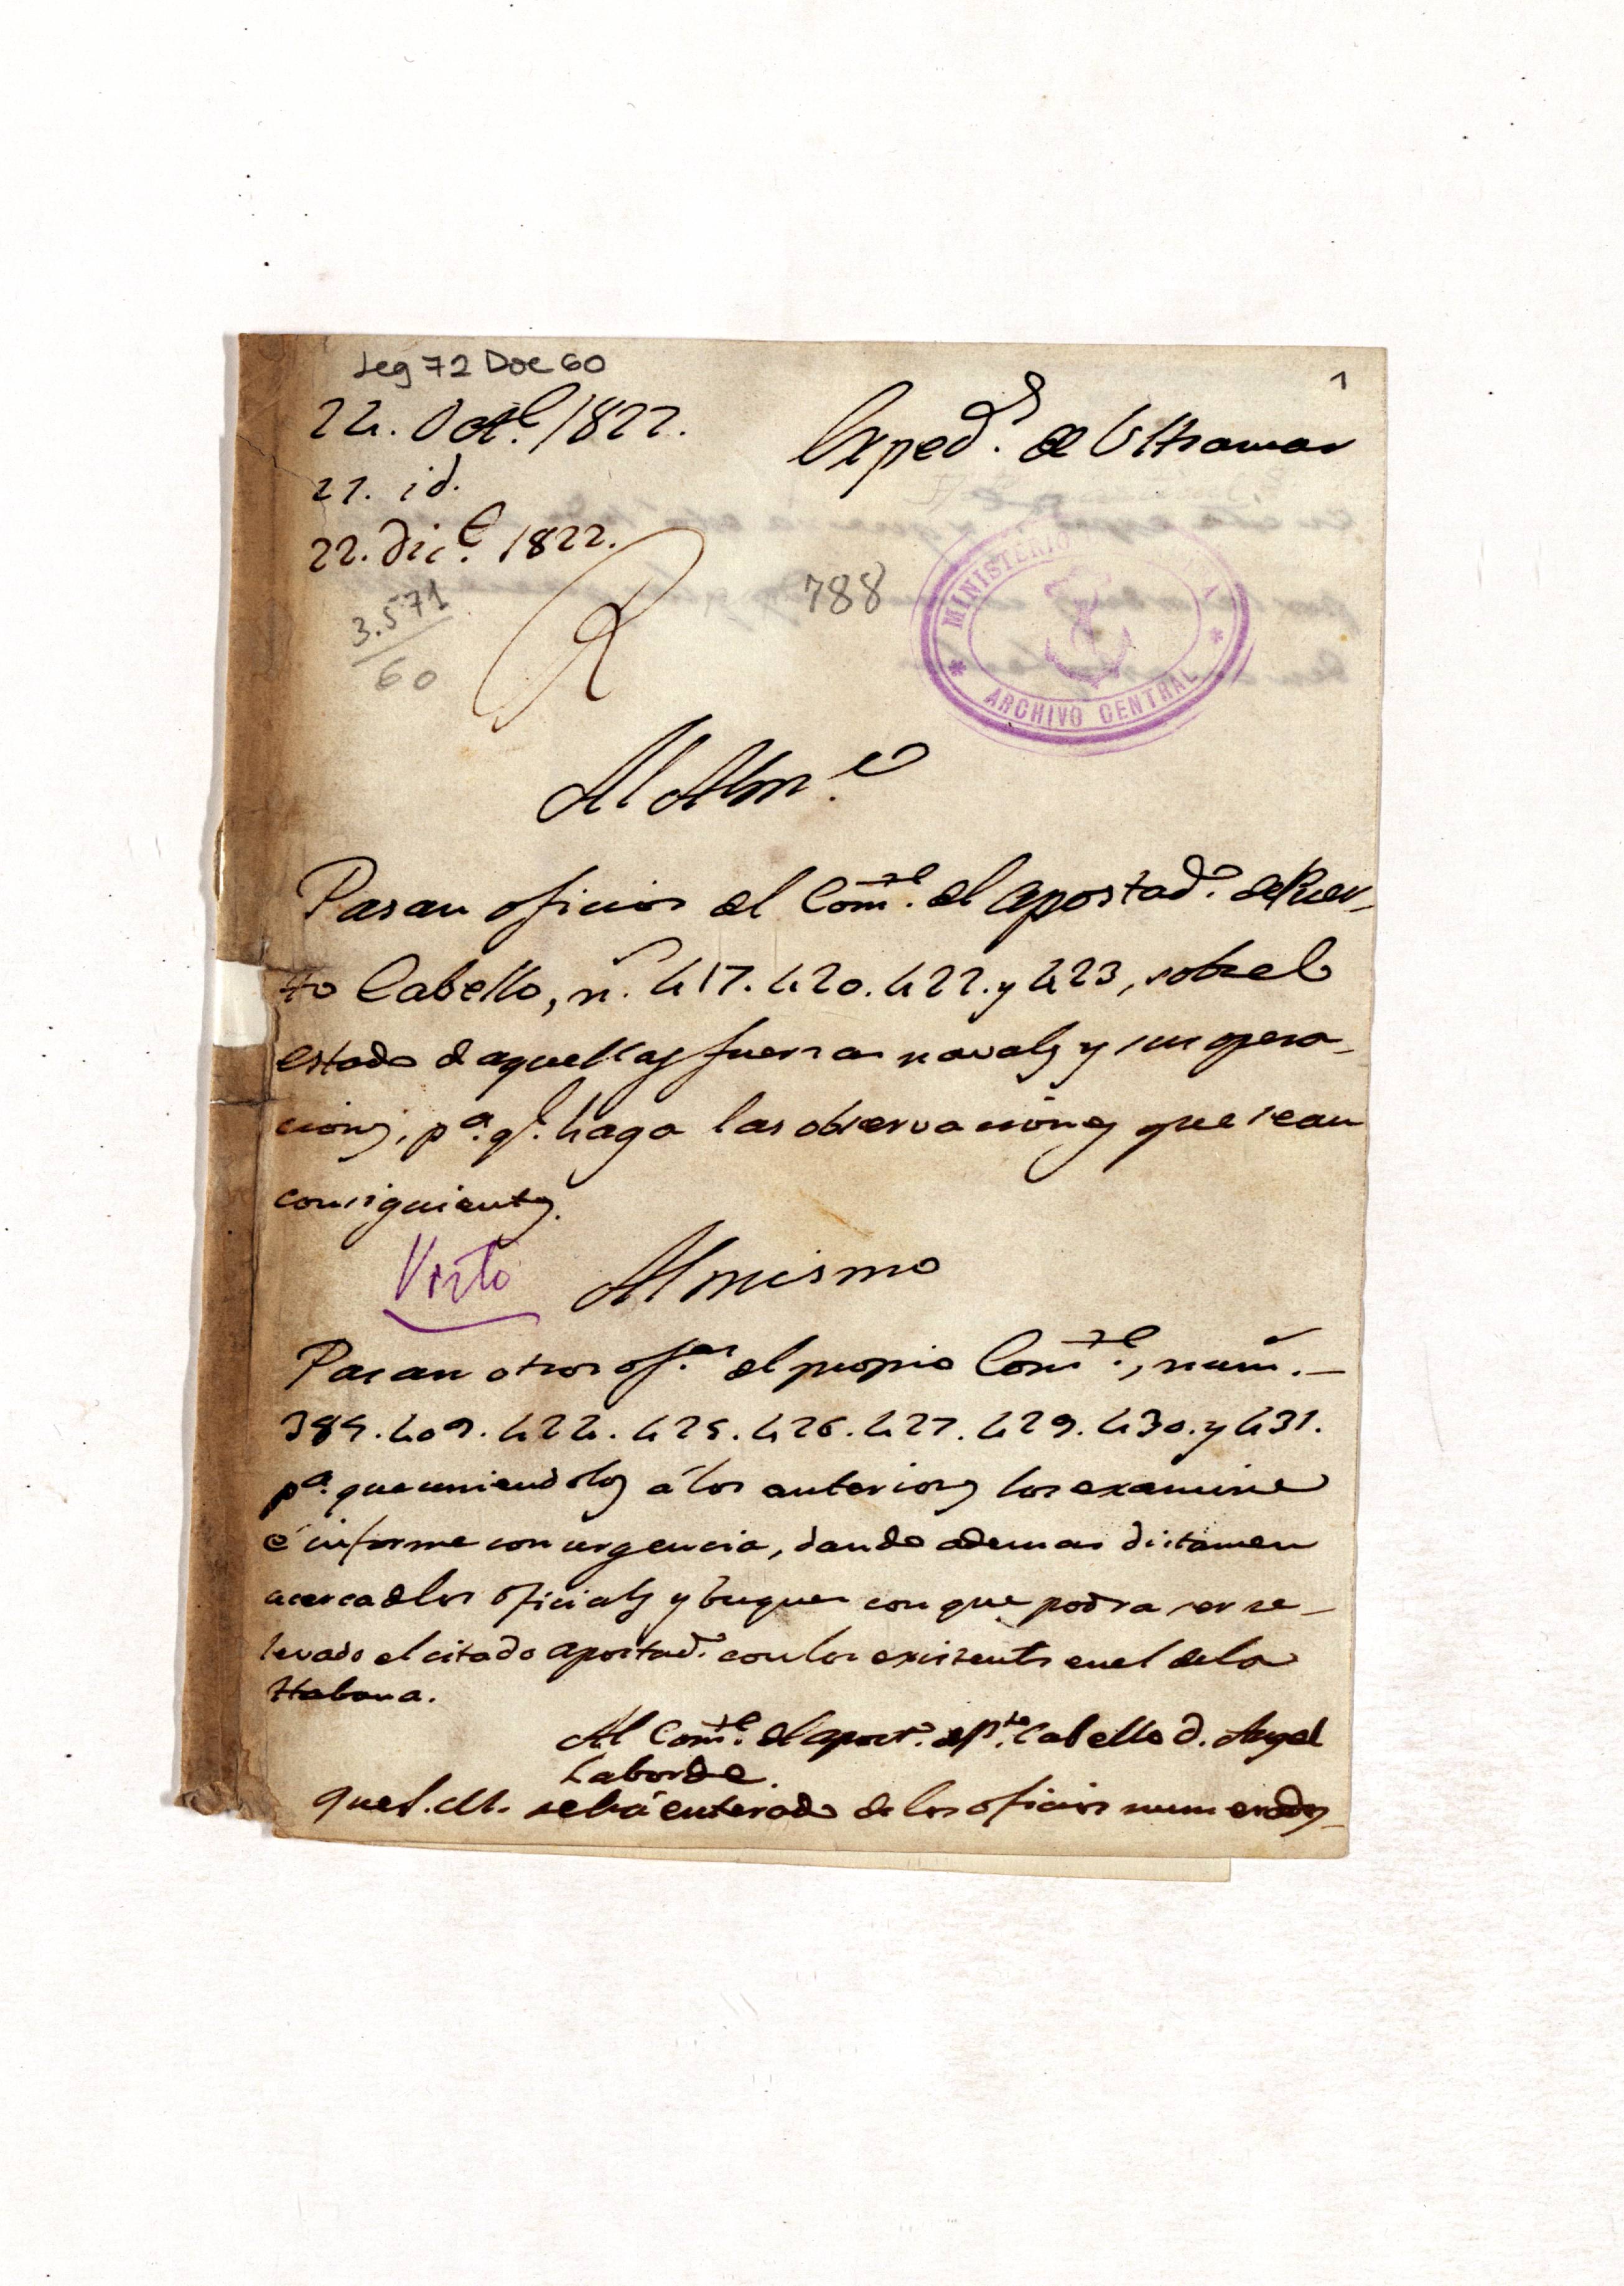 Leg 72 Doc 60
1
24. Oct.e 1822.
Exped.s de Ultramar
27. id.
22. Dic.e 1822.
3.571
60
788
MINISTERIO
ARCHIVO CENTRAL
Al Alm.e
Pasan oficios del Com.te del apostad.o de Puer-
to Cabello, n.s 417. 420. 422. y 423, sobre el
estado de aquellas fuerzas navales y sus opera-
ciones, p.a q.e haga las observaciones que sean
consiguientes.
Visto
Al mismo
Pasan otros of.os del propio Com.te, num.-
389. 409. 424. 425. 426. 427. 429. 430. y 431.
p.a que uniendolos á los anteriores los examine
é informe con urgencia, dando ademas dictamen
acerca de los oficiales y buques con que podra ser re-
levado el citado apostad.o con los existentes en el de la
Habana.
Al Com.te del apost.o de P.to Cabello D. Angel
Laborde.
que S. M. se há enterado de los oficios numerados